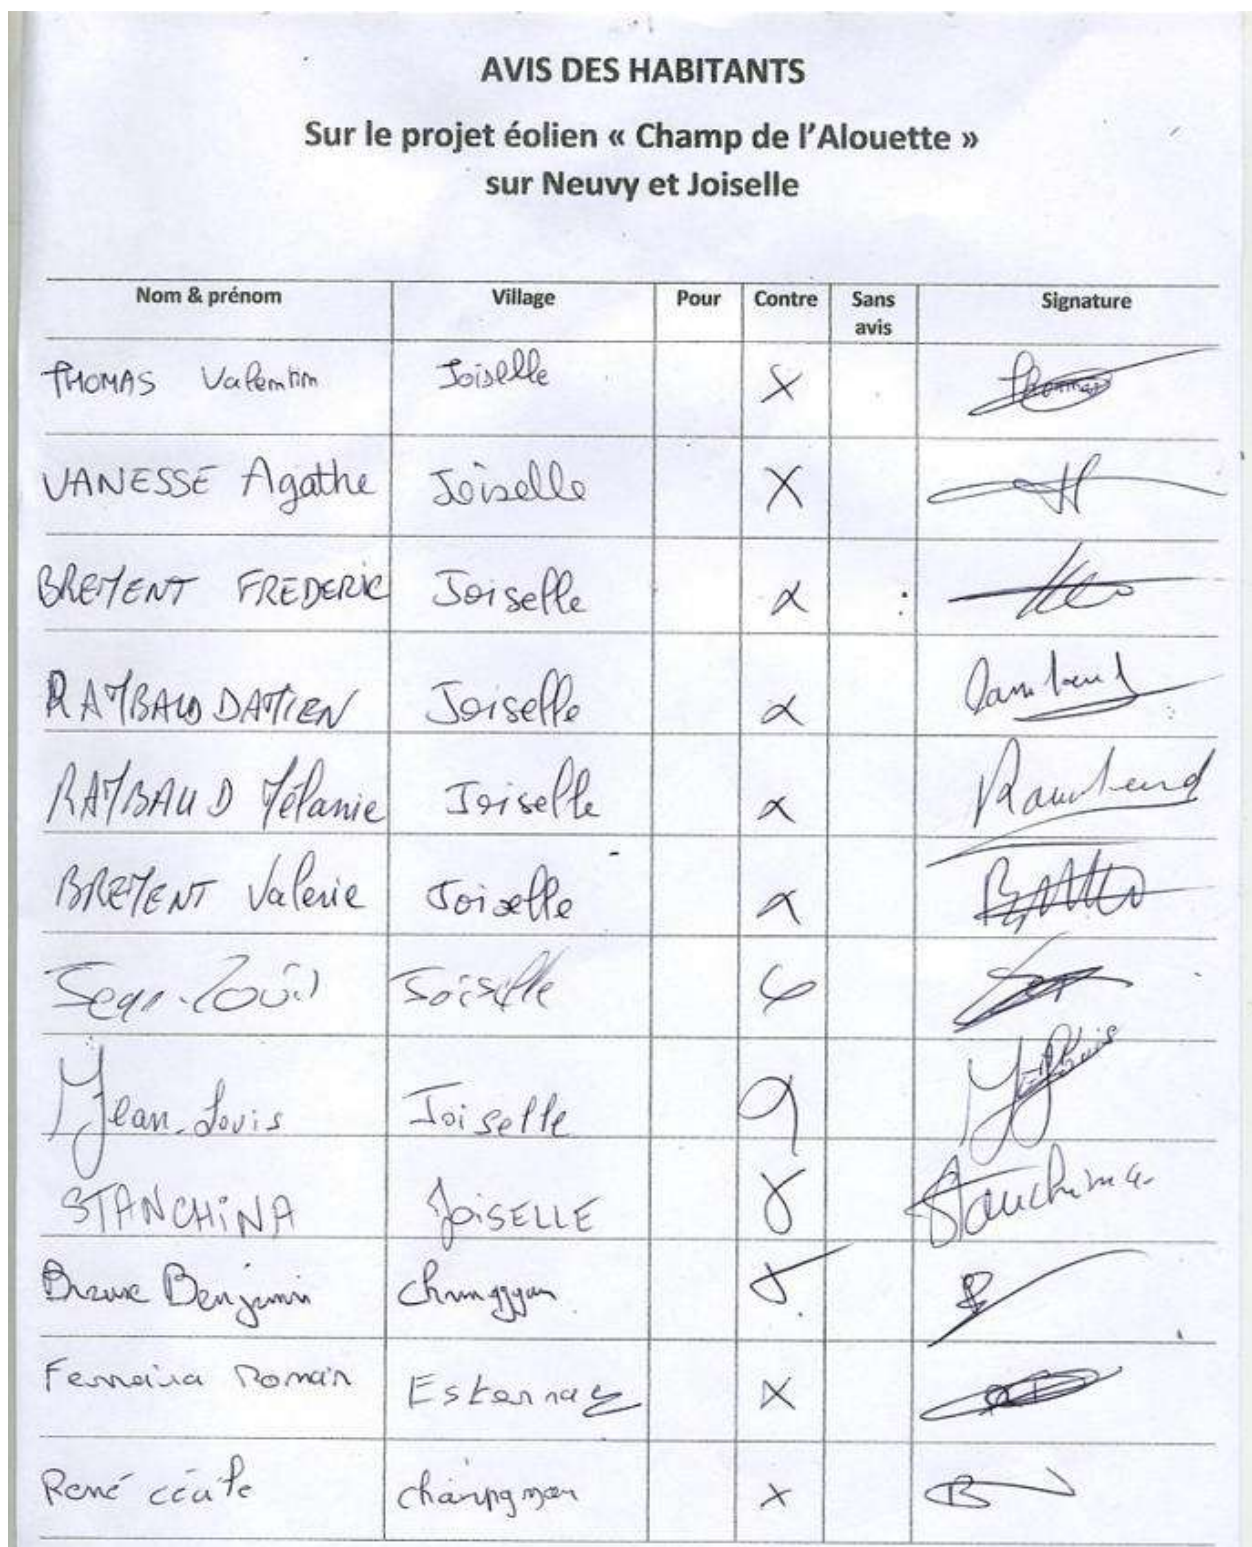 AVIS DES HABITANTS
Sur le projet éolien « Champ de l'Alouette »
sur Neuvy et Joiselle
Nom & prénom Village Pour Contre Sans avis Signature
THOMAS Valentin Joiselle X Thomas
VANESSE Agathe Joiselle X
BREMENT FREDERIC Joiselle X
RAMBAUD DAMIEN Joiselle X Rambaud
RAMBAUD Mélanie Joiselle X Rambaud
BREMENT Valerie Joiselle X
Jean-Louis Joiselle X
Jean-Louis Joiselle X
STANCHINA JOISELLE X Stanchina
Benjamin X
Ferreira Romain Esternay X
René X